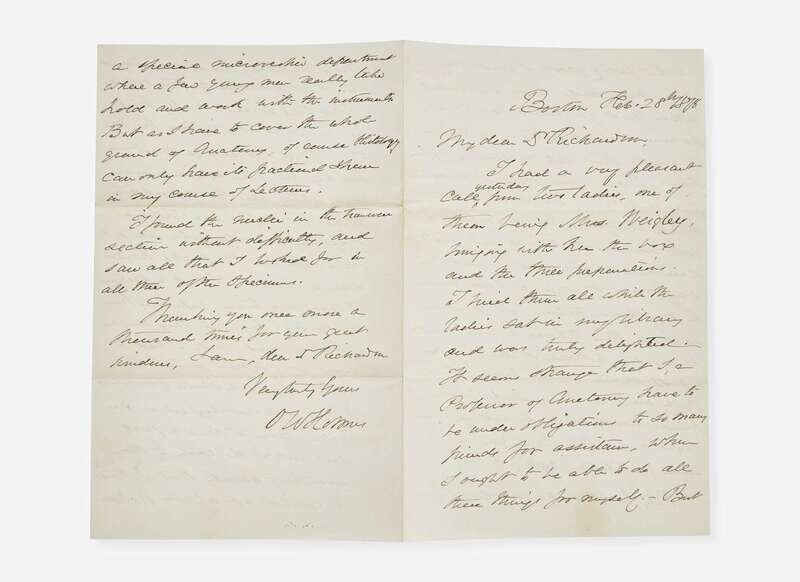 Boston Feb. 28th 1878
My dear Dr Richardson,
I had a very pleasant
yesterday
call, from two ladies, one of
them being Mrs. Weigley,
bringing with her the box
and the three preparations.
I tried them all while the
ladies sat in my library
and was truly delighted.—
It seems strange that I, a
Professor of Anatomy have to
be under obligations to so many
friends for assistance, when
I ought to be able to do all
these things for myself.— But
a special microscopic department
where a few young men really take
hold and work with the instruments
But as I have to cover the whole
ground of Anatomy, of course Histology
can only have its fractional share
in my course of Lectures.
I found the nuclei in the human
section without difficulty, and
saw all that I looked for in
all three of the specimens.
Thanking you once more a
thousand times for your great
kindness, I am, dear Dr Richardson
Very truly Yours
O W Holmes